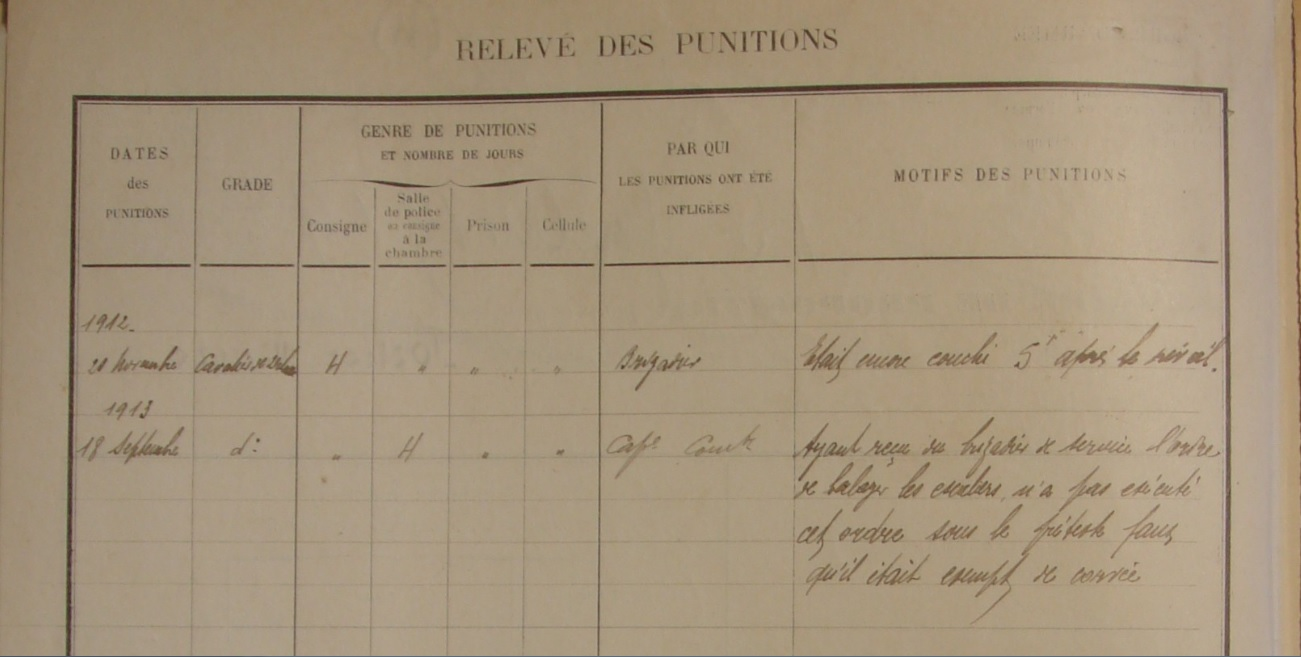 RELEVÉ DES PUNITIONS
DATES
des
PUNITIONS
GRADE
GENRE DE PUNITIONS
ET NOMBRE DE JOURS
Consigne
Salle
de police
ou consigne
à la
chambre
Prison
Cellule
PAR QUI
LES PUNITIONS ONT ÉTÉ
INFLIGÉES
MOTIFS DES PUNITIONS
1912.
20 Novembre Cavalier de 2e classe 4 " " " Brigadier Etait encore couché 5' après le réveil.
1913
18 Septembre do " 4 " " Cape Comt Ayant reçu du brigadier de service l'ordre
de balayer les escaliers, n'a pas exécuté
cet ordre sous le prétexte faux
qu'il était exempt de corvée